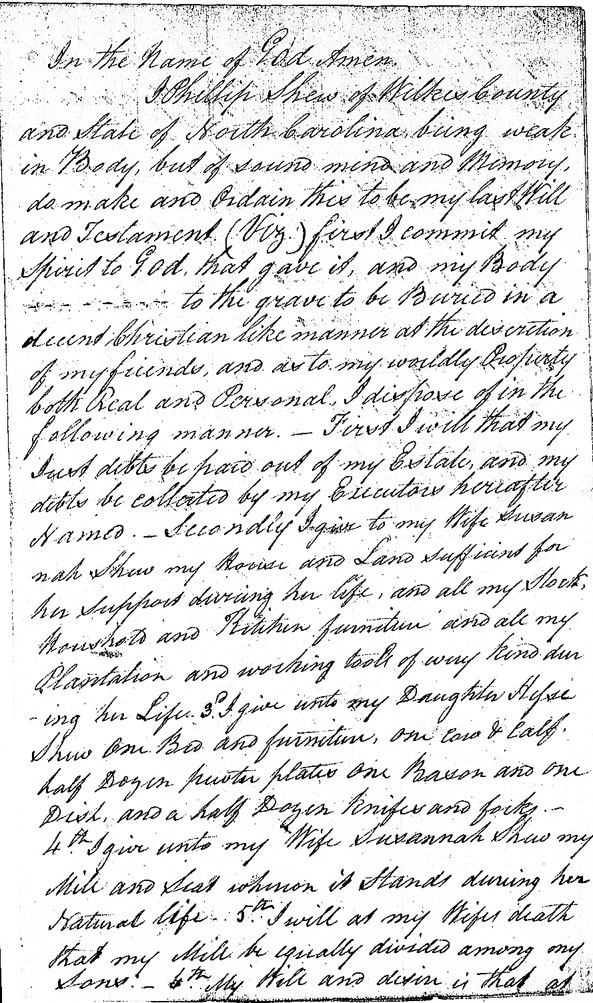 In the Name of God Amen.
I Phillip Shew of Wilkes County
and State of North Carolina, being weak
in Body, but of sound mind and Memory,
do make and Ordain this to be my last Will
and Testament (Viz.) first I commit my
Spirit to God, that gave it, and my Body
to the grave to be Buried in a
decent Christian like manner at the descretion
of my friends, and as to my worldly Property
both Real and Personal, I dispose of in the
following manner. — First I will that my
Just debts be paid out of my Estate, and my
debts be collected by my Executors hereafter
Named. — Secondly I give to my Wife Susan
nah Shew my House and Land sufficint for
her support during her life, and all my Stock,
Houshold and Kitchen furniture and all my
Plantation and working tools of every kind dur
-ing her Life. 3d I give unto my Daughter
Shew One Bed and furniture, one Cow & Calf.
half Dozen pewter plates One Bason and one
Dish, and a half Dozen Knifes and forks. —
4th I give unto my Wife Susannah Shew my
Mill and Seat whereon it Stands during her
Natural life — 5th I will at my Wifes death
that my Mill be equally divided among my
Sons. — 6th My Will and desire is that at